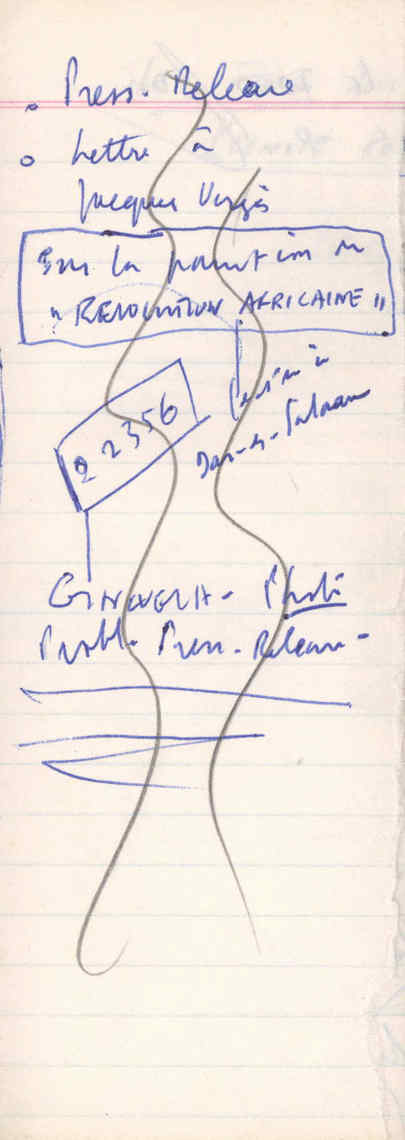 Press-Release
Lettre à
Jacques Vergès
Sur la parution de
"REVOLUTION AFRICAINE"
à
Dar-es-Salaam
22356
GINEVRA - Photo
Probl. Press-Release-